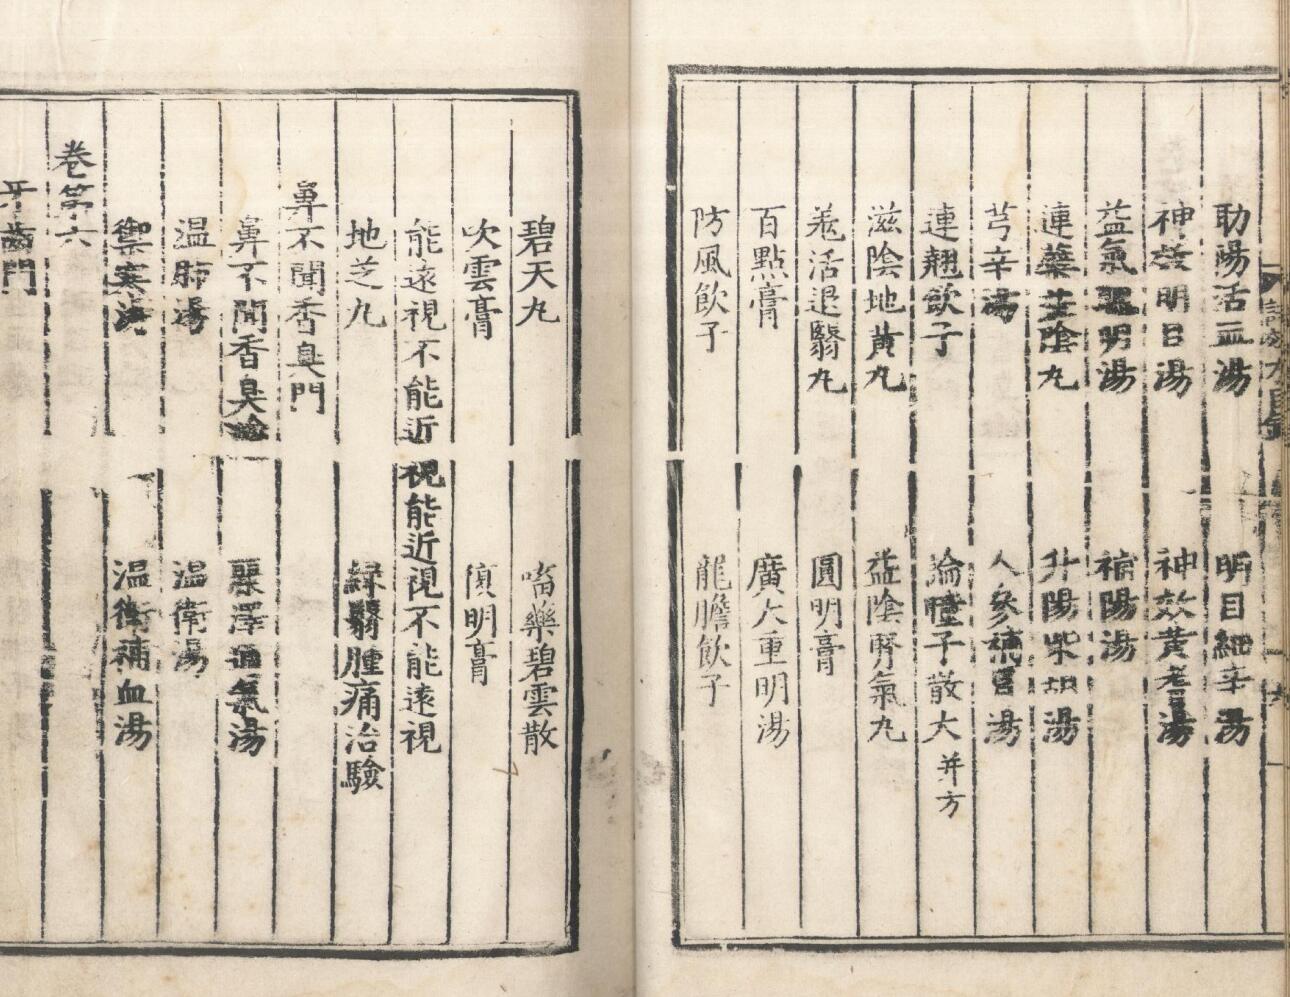 助陽活血湯　明目細辛湯
神效明目湯　神效黃耆湯
益氣聰明湯　補陽湯
連蘗益陰丸　升陽柴胡湯
芎辛湯　人參補胃湯
連翹飲子　論瞳子散大并方
滋陰地黃丸　益陰腎氣丸
羌活退翳丸　圓明膏
百點膏　廣大重明湯
防風飲子　龍膽飲子
碧天丸　嗜藥碧雲散
吹雲膏　復明膏
能遠視不能近視能近視不能遠視
地芝丸　綠翳瘇痛治驗
鼻不聞香臭門
鼻不聞香臭論　麗澤通氣湯
温肺湯　温衛湯
御寒湯　温衛補血湯
卷第六
牙齒門